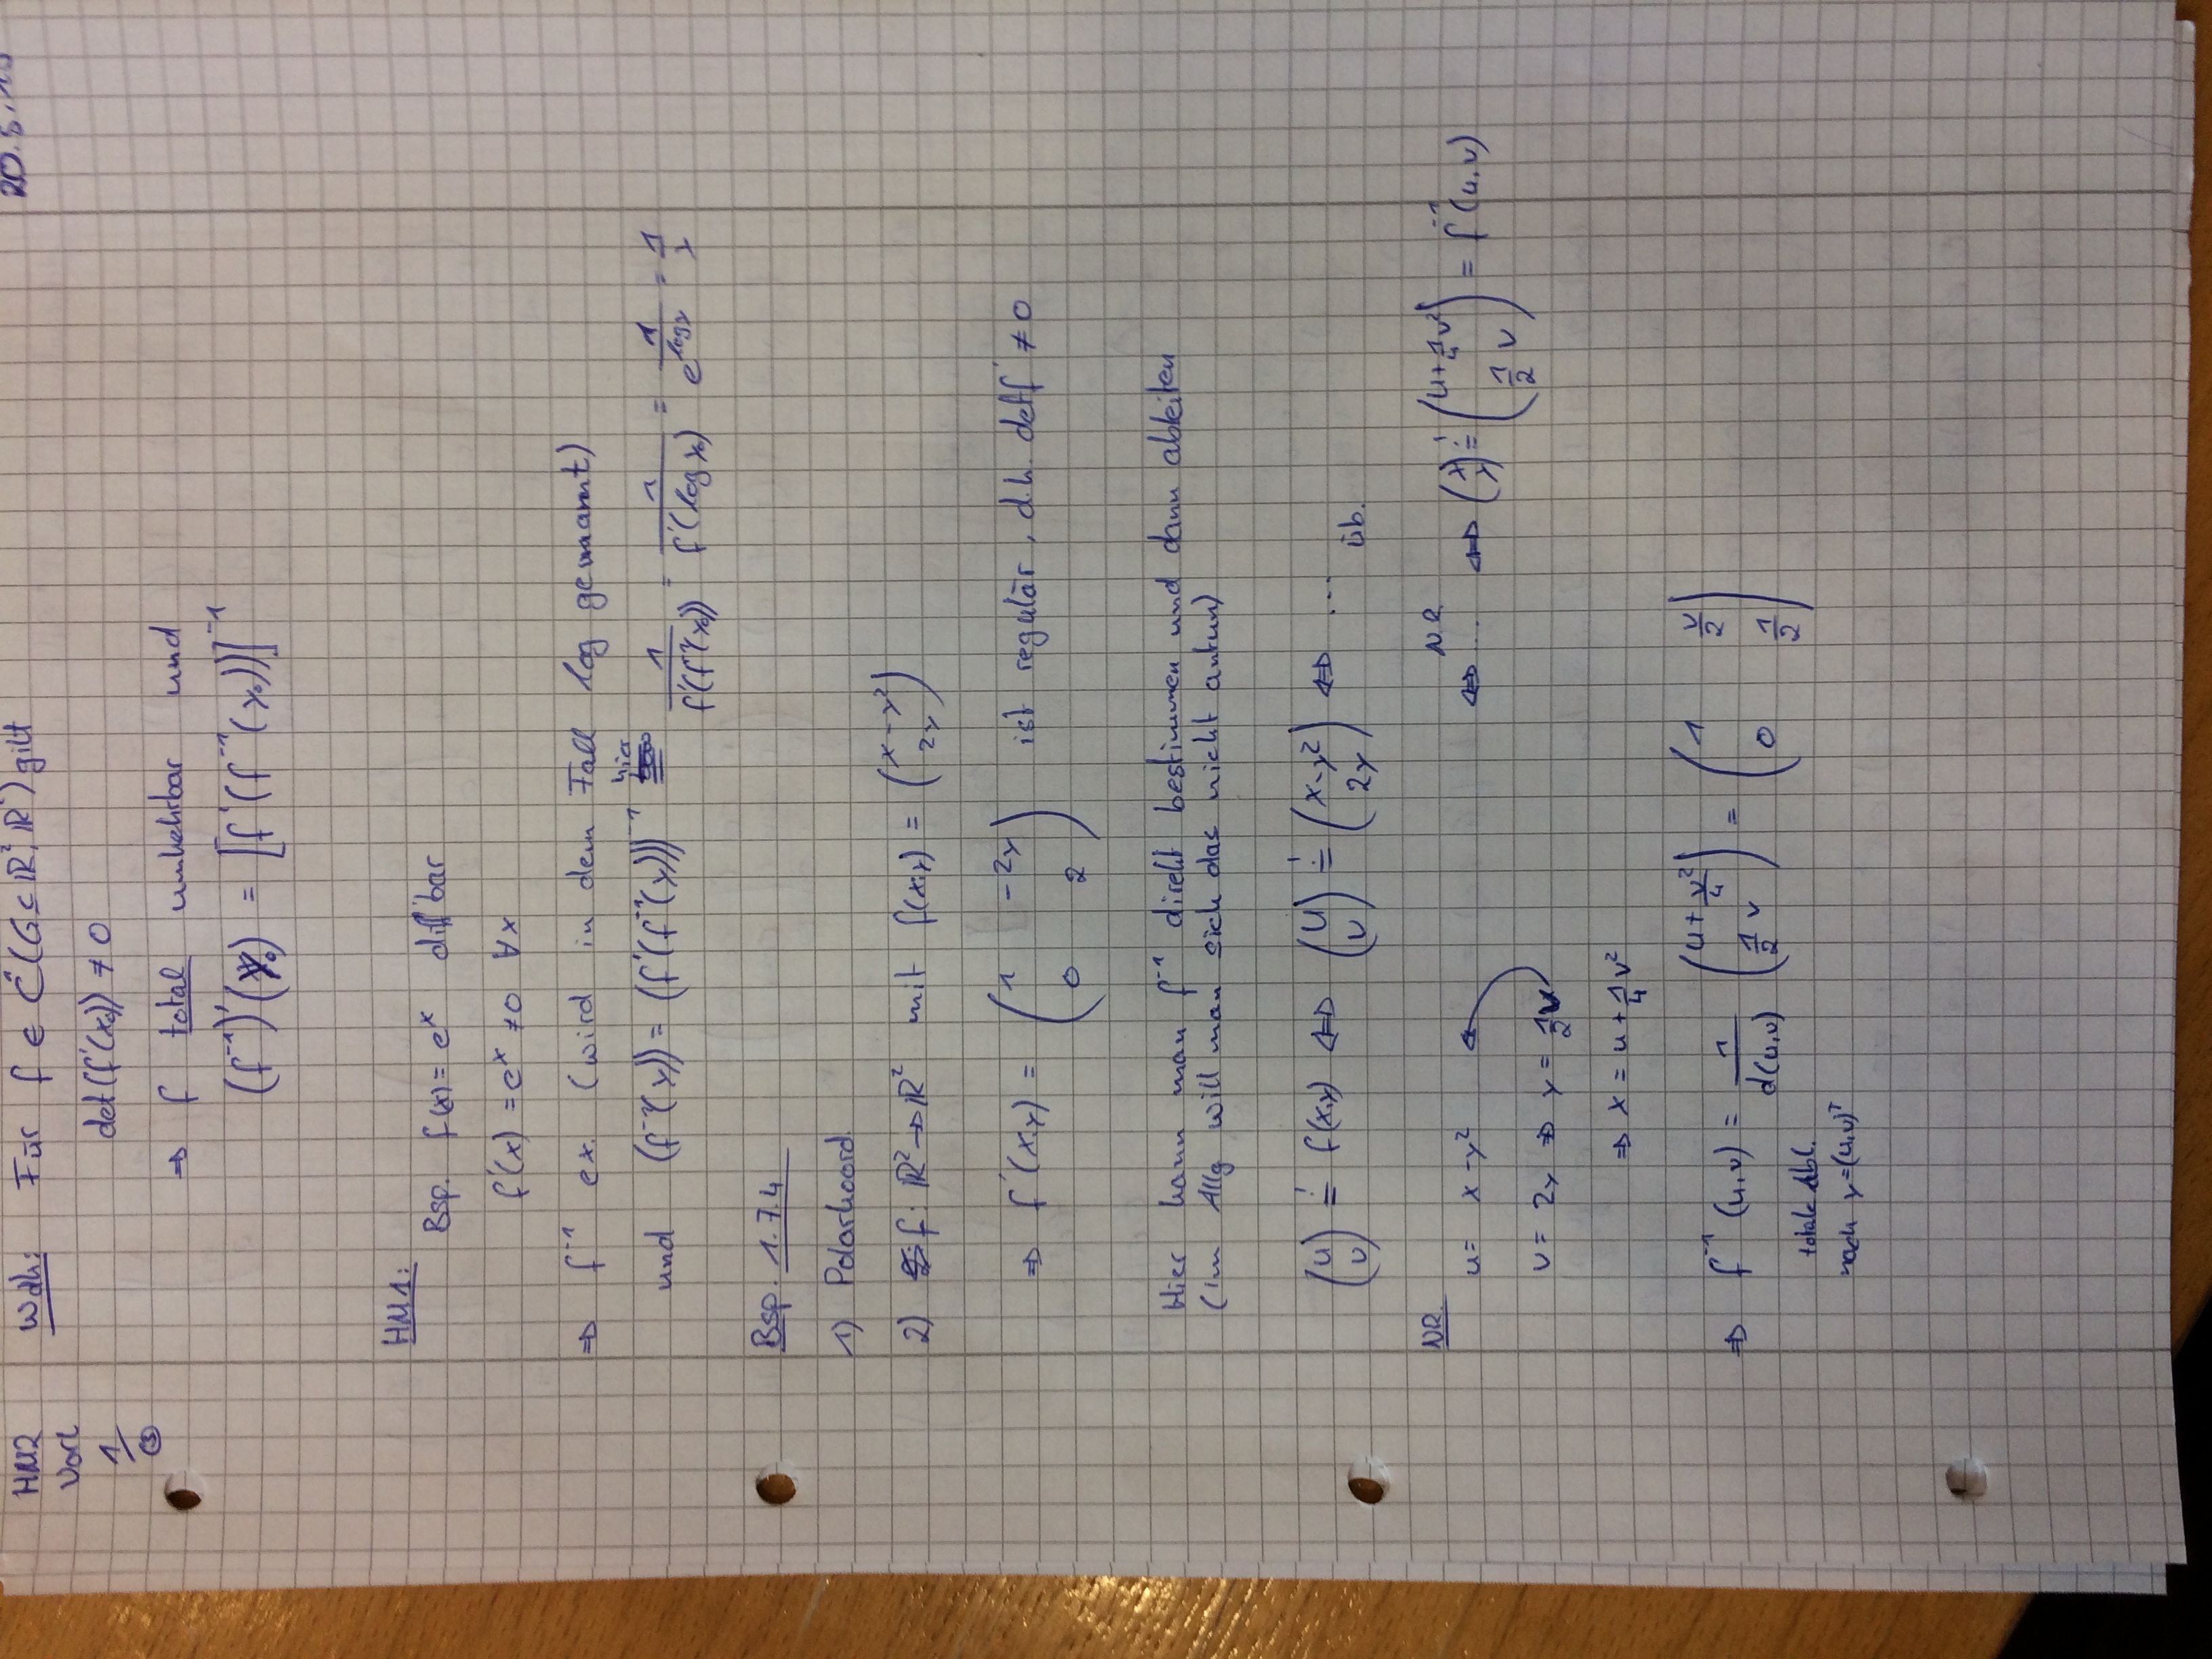 HM2
Vorl
1/③
Wdh: Für f ∈ C¹(G ⊆ ℝ², ℝ²) gilt
det(f'(x₀)) ≠ 0
⇒ f total umkehrbar und
(f⁻¹)'(y₀) = [f'(f⁻¹(y₀))]⁻¹
HM1:
Bsp. f(x) = eˣ diff'bar
f'(x) = eˣ ≠ 0 ∀x
⇒ f⁻¹ ex. (wird in dem Fall log genannt)
und (f⁻¹'(y)) = (f'(f⁻¹(y)))⁻¹ hier = 1/f'(f⁻¹(y₀)) = 1/f'(log y₀) = 1/e^(log y) = 1/y
Bsp. 1.7.4
1) Polarkoord.
2) f: ℝ² → ℝ² mit f(x,y) = (x-y² ; 2y)
⇒ f'(x,y) = (1 -2y ; 0 2) ist regulär, d.h. det f' ≠ 0
Hier kann man f⁻¹ direkt bestimmen und dann ableiten
(im Allg will man sich das nicht antun)
(u ; v) =! f(x,y) ⇔ (u ; v) =! (x-y² ; 2y) ⇔ ... üb.
NR. ⇔ ... NR ⇔ (x ; y) =! (u+¼v² ; ½ v) = f⁻¹(u,v)
u = x-y²
v = 2y ⇒ y = ½v
⇒ x = u + ¼v²
⇒ f⁻¹(u,v) = 1/d(u,v) (u + v²/4 ; ½ v) = (1 v/2 ; 0 ½)
totale Abl.
nach y=(u,v)ᵀ